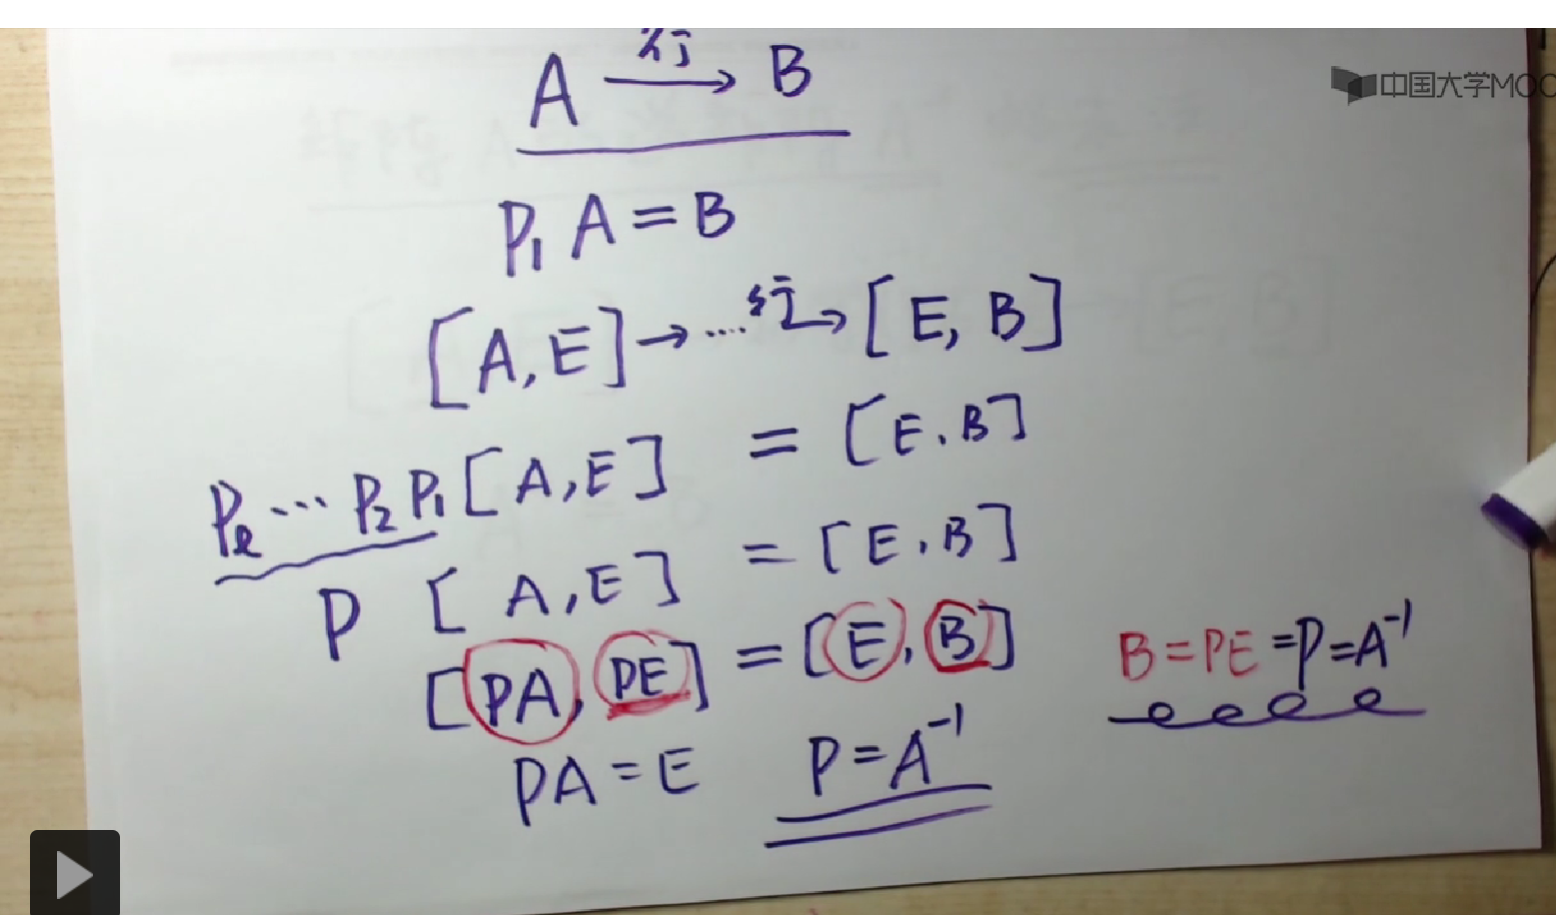 中国大学MOO
A 行→ B
P₁ A = B
[A, E] → .... 行→ [E, B]
Pₑ ... P₂ P₁ [A, E] = [E, B]
P [A, E] = [E, B]
[PA, PE] = [E, B]
B = PE = P = A⁻¹
PA = E P = A⁻¹